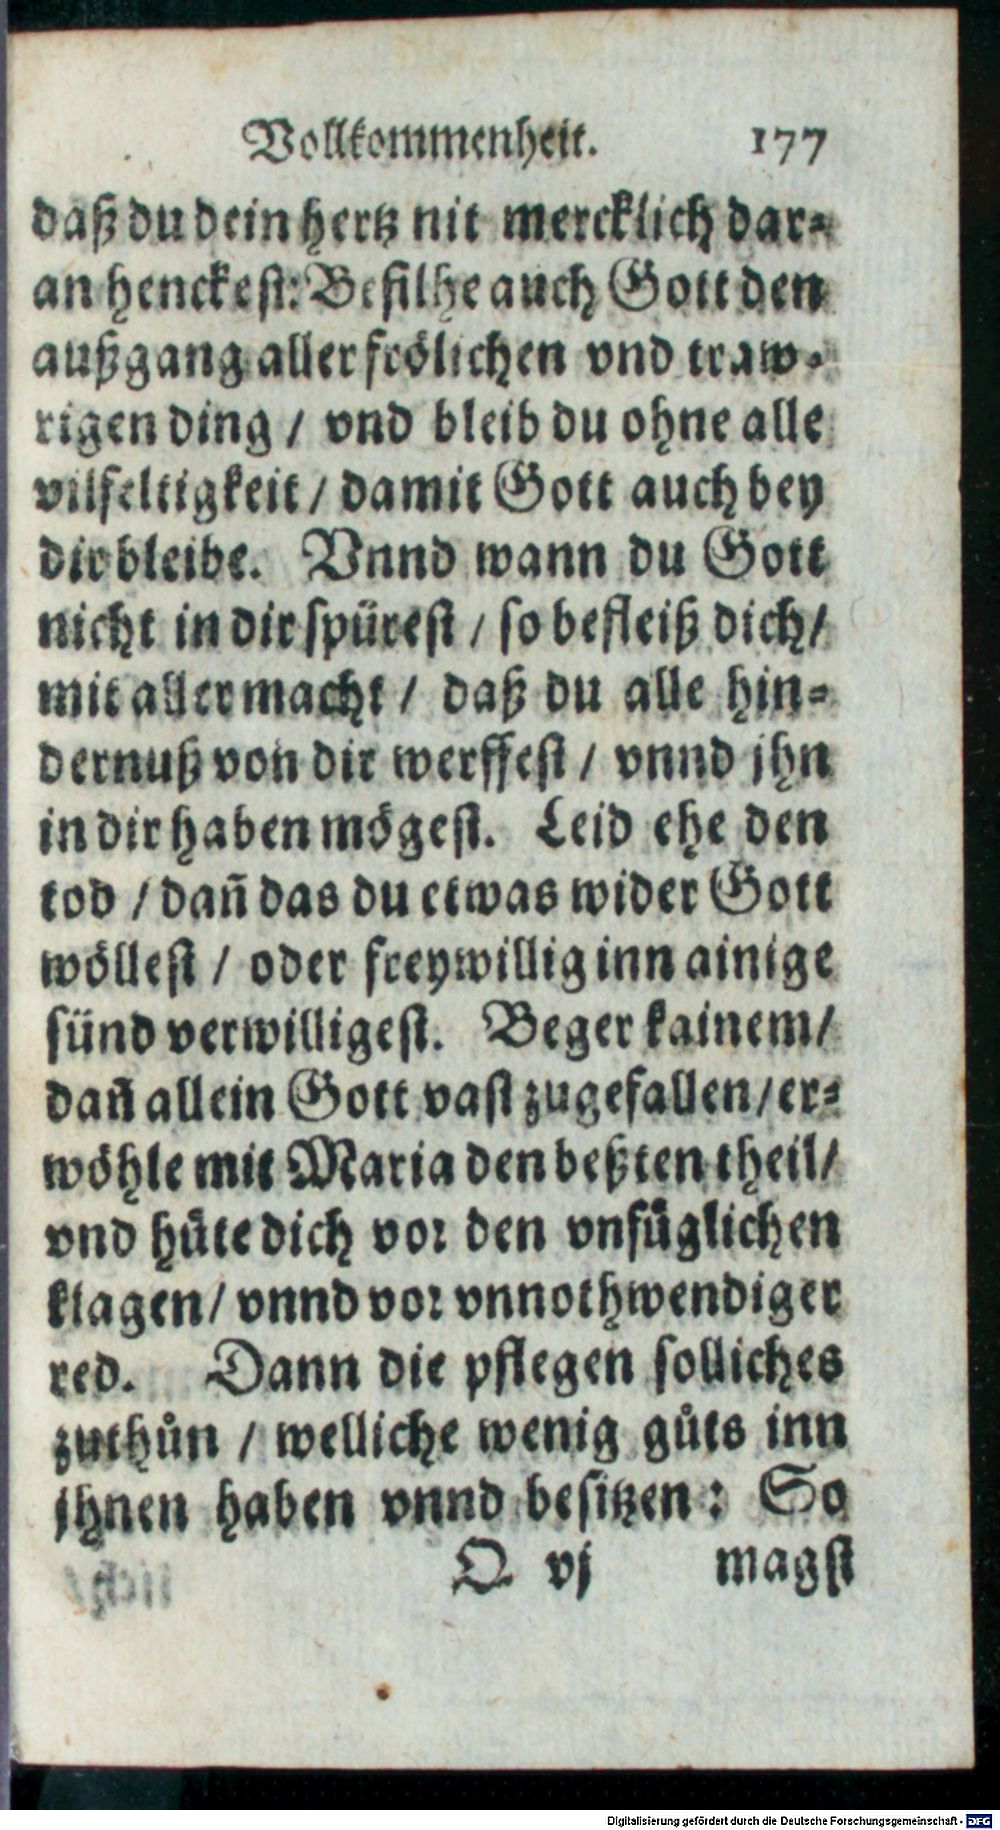 Vollkommenheit. 177
daß du dein hertz nit mercklich dar-
an henckest: Befilhe auch Gott den
außgang aller frölichen vnd traw-
rigen ding / vnd bleib du ohne alle
vilfeltigkeit / damit Gott auch bey
dir bleibe. Vnnd wann du Gott
nicht in dir spürest / so befleiß dich /
mit aller macht / daß du alle hin-
dernuß von dir werffest / vnnd jhn
in dir haben mögest. Leid ehe den
tod / dañ das du etwas wider Gott
wöllest / oder freywillig inn ainige
sünd verwilligest. Beger kainem /
dañ allein Gott vast zugefallen / er-
wöhle mit Maria den beßten theil /
vnd hüte dich vor den vnfüglichen
klagen / vnnd vor vnnothwendiger
red. Dann die pflegen solliches
zuthůn / welliche wenig gůts inn
jhnen haben vnnd besitzen: So
O vj magst
Digitalisierung gefördert durch die Deutsche Forschungsgemeinschaft - DFG